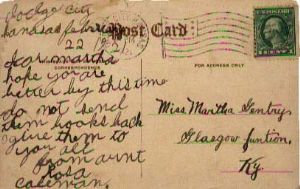 dodge city
kansas
22
Post Card
CORRESPONDENCE
FOR ADDRESS ONLY
dear martha
hope you are
better by this time
do not send
them books back
give them to
you all
from aunt
rosa
coleman
Miss Martha Gentry
Glasgow Juntion,
Ky.